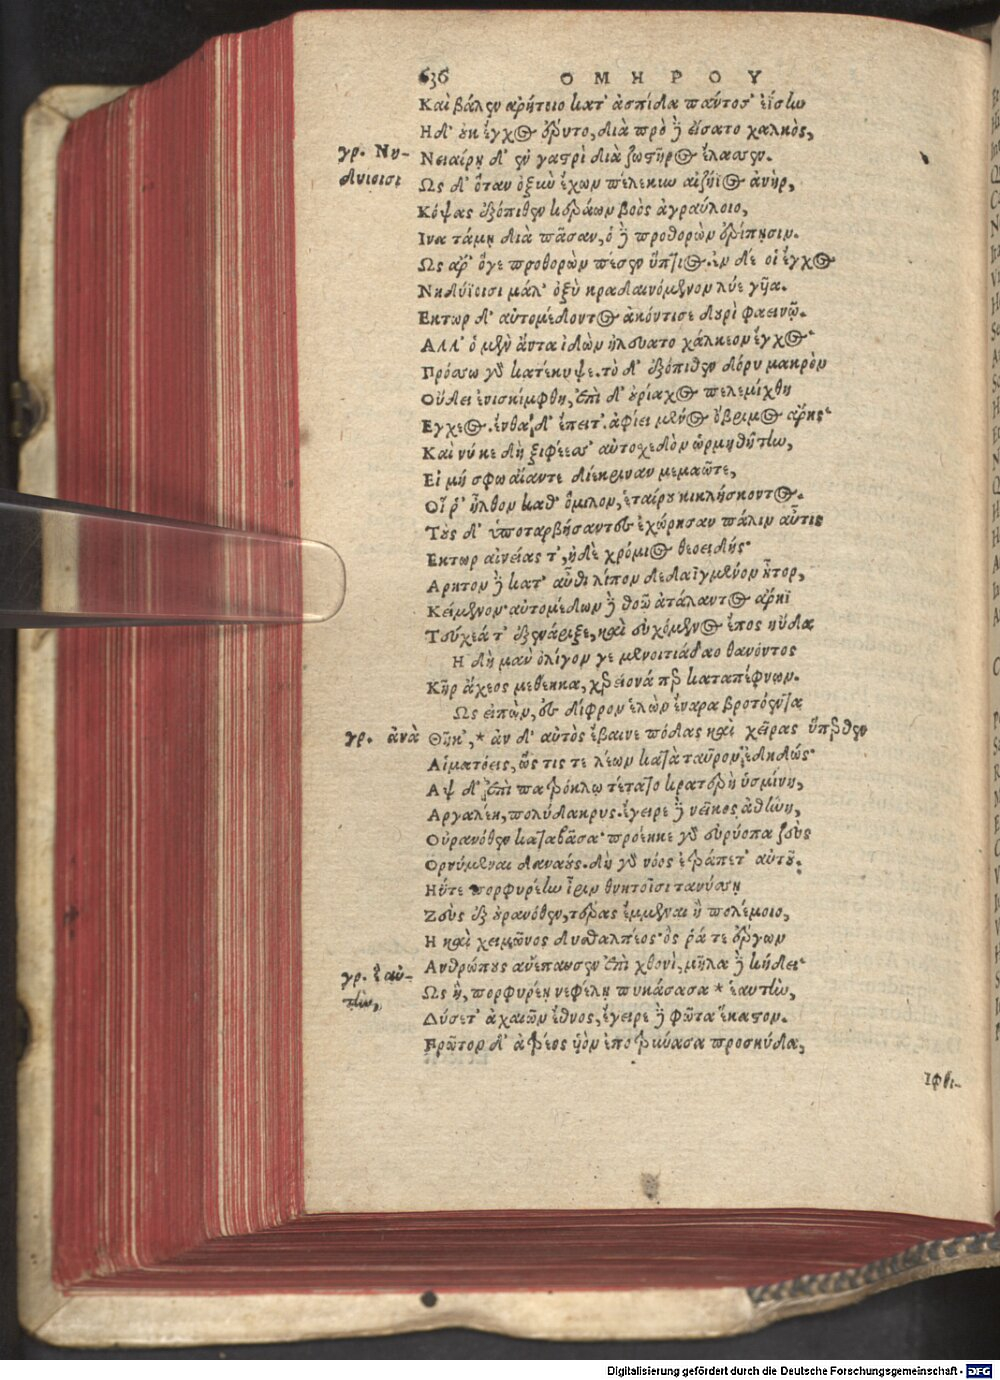 636 ΟΜΗΡΟΥ
Καὶ βάλεν ἀρήτοιο κατ' ἀσπίδα πάντοσ' ἐΐσην
Η δ' οὐκ ἔγχος ἔρυτο, διὰ πρὸ δὲ εἴσατο χαλκὸς,
γρ. Νη-
δυιοισι
Νειαίρῃ δ' ἐν γαστρὶ διὰ ζωστῆρος ἔλασσεν.
Ως δ' ὅταν ὀξεὺν ἔχων πέλεκυν αἰζήϊος ἀνὴρ,
Κόψας ἐξόπιθεν κεράων βοὸς ἀγραύλοιο,
Ινα τάμῃ διὰ πᾶσαν, ὁ δὲ προθορὼν ἐρίπῃσιν.
Ως ἄρ' ὅγε προθορὼν πέσεν ὕπτιος. ἐν δέ οἱ ἔγχος
Νηδύϊοισι μάλ' ὀξὺ κραδαινόμενον λύε γῆα.
Εκτωρ δ' αὐτομέδοντος ἀκόντισε δουρὶ φαεινῷ.
Αλλ' ὁ μὲν ἄντα ἰδὼν ἠλεύατο χάλκεον ἔγχος·
Πρόσσω γὰρ κατέκυψε. τὸ δ' ἐξόπιθεν δόρυ μακρὸν
Οὔδει ἐνισκίμφθη, ἐπὶ δ' οὐρίαχος πελεμίχθη
Εγχεος. ἔνθα δ' ἔπειτ' ἀφίει μένος ὄβριμος ἄρης·
Καὶ νύ κε δὴ ξιφέεσσ' αὐτοσχεδὸν ὡρμηθήτην,
Εἰ μή σφω αἴαντε διέκριναν μεμαῶτε,
Οἵ ῥ' ἦλθον καθ' ὅμιλον, ἑταίρου κικλήσκοντος.
Τοὺς δ' ὑποταρβήσαντες ἐχώρησαν πάλιν αὖτις
Εκτωρ αἰνείας τ', ἠδὲ χρόμιος θεοειδής·
Αρητον δὲ κατ' αὖθι λίπον δεδαϊγμένον ἦτορ,
Κείμενον· αὐτομέδων δὲ θοῷ ἀτάλαντος ἄρηϊ
Τεύχεά τ' ἐξενάριξε, καὶ εὐχόμενος ἔπος ηὔδα
Η δὴ μὰν ὀλίγον γε μενοιτιάδαο θανόντος
Κῆρ ἄχεος μεθέηκα, χερείονά περ καταπέφνων.
Ως εἰπὼν, ἐς δίφρον ἑλὼν ἔναρα βροτόεντα
γρ. ἀνὰ
Θῆκ', * ἂν δ' αὐτὸς ἔβαινε πόδας καὶ χεῖρας ὕπερθεν
Αἱματόεις, ὥς τις τε λέων κατὰ ταῦρον ἐδηδώς·
Αψ δ' ἐπὶ πατρόκλῳ τέτατο κρατερὴ ὑσμίνη,
Αργαλέη, πολύδακρυς. ἔγειρε δὲ νεῖκος ἀθήνη,
Οὐρανόθεν καταβᾶσα· προέηκε γὰρ εὐρύοπα ζεὺς
Ορνύμεναι δαναούς. δὴ γὰρ νόος ἐτράπετ' αὐτοῦ.
Ηΰτε πορφυρέην ἶριν θνητοῖσι τανύσσῃ
Ζεὺς ἐξ οὐρανόθεν, τέρας ἔμμεναι ἢ πολέμοιο,
Η καὶ χειμῶνος δυσθαλπέος· ὅς ῥά τε ἔργων
Ανθρώπους ἀνέπαυσεν ἐπὶ χθονὶ, μῆλα δὲ κήδει·
γρ. ἑ αὐ-
τὴν,
Ως ἡ, πορφυρέῃ νεφέλῃ πυκάσασα * ἑαυτὴν,
Δύσετ' ἀχαιῶν ἔθνος, ἔγειρε δὲ φῶτα ἕκαστον.
Πρῶτον δ' ἀτρέος υἱὸν ἐποτρύνασα προσηύδα,
Ιφθι-
Digitalisierung gefördert durch die Deutsche Forschungsgemeinschaft - DFG